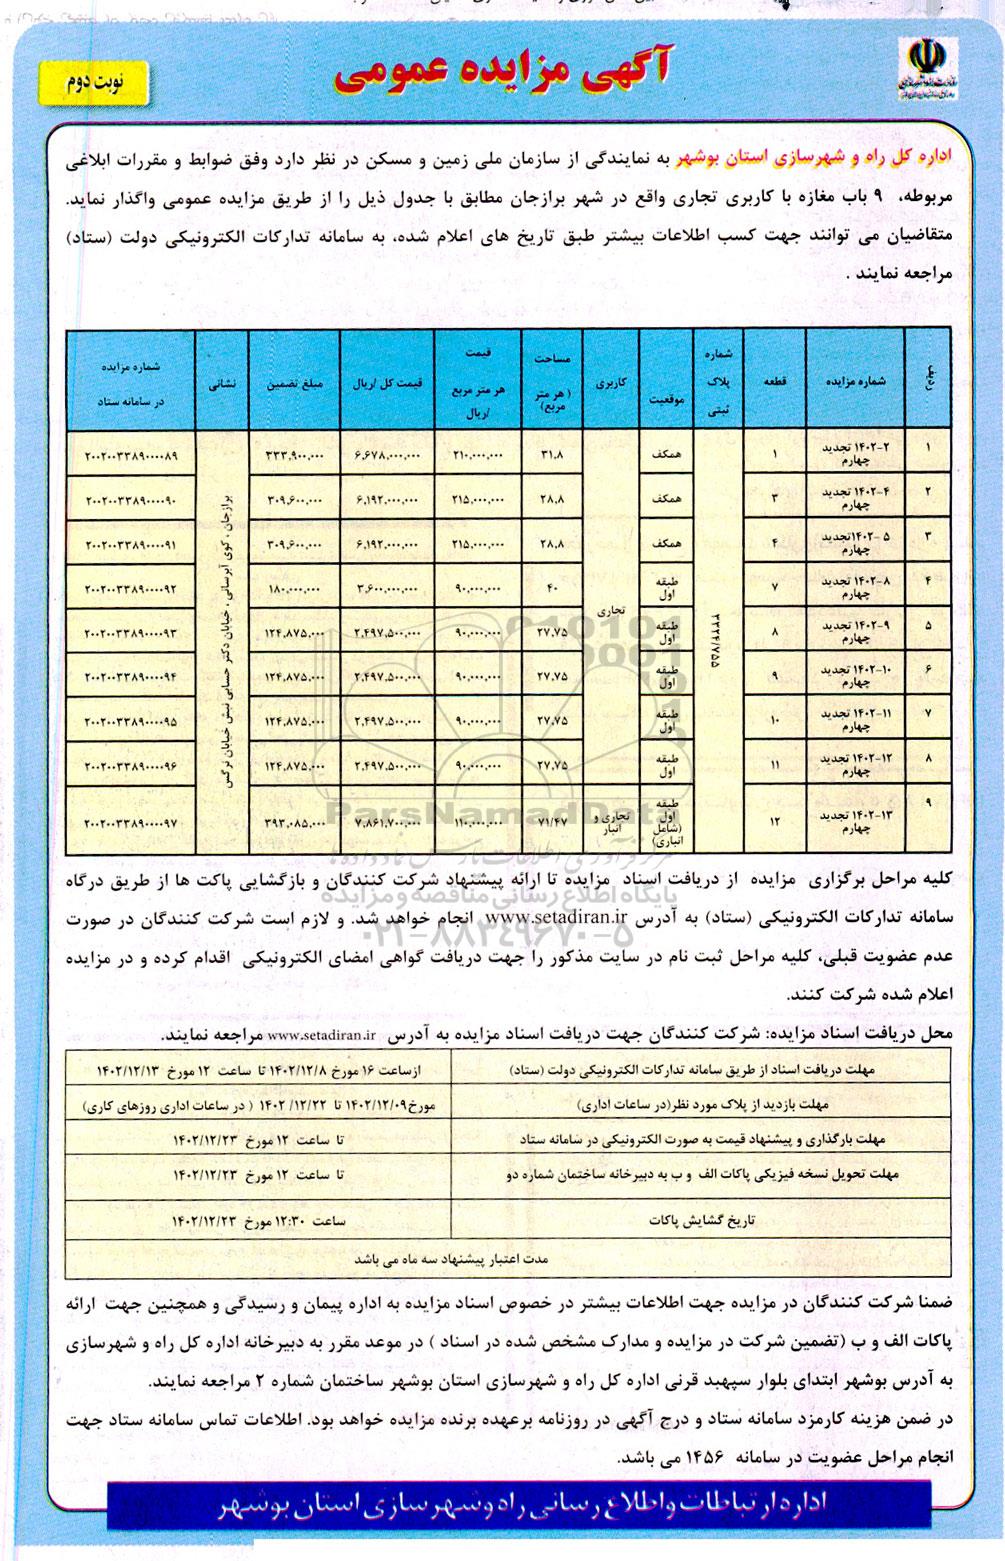 آگهی مزایده عمومی
نوبت دوم
اداره کل راه و شهرسازی استان بوشهر به نمایندگی از سازمان ملی زمین و مسکن در نظر دارد وفق ضوابط و مقررات ابلاغی
مربوطه، ۹ باب مغازه با کاربری تجاری واقع در شهر برازجان مطابق با جدول ذیل را از طریق مزایده عمومی واگذار نماید.
متقاضیان می توانند جهت کسب اطلاعات بیشتر طبق تاریخ های اعلام شده، به سامانه تدارکات الکترونیکی دولت (ستاد)
مراجعه نمایند .
ردیف | شماره مزایده | قطعه | شماره پلاک ثبتی | موقعیت | کاربری | مساحت ( هر متر مربع) | قیمت هر متر مربع /ریال | قیمت کل /ریال | مبلغ تضمین | نشانی | شماره مزایده در سامانه ستاد
۱ | ۲-۱۴۰۲ تجدید چهارم | ۱ | همکف | ۳۱.۸ | ۲۱۰.۰۰۰.۰۰۰ | ۶.۶۷۸.۰۰۰.۰۰۰ | ۳۳۳.۹۰۰.۰۰۰ | ۲۰۰۲۰۰۳۳۸۹۰۰۰۰۸۹
۲ | ۴-۱۴۰۲ تجدید چهارم | ۳ | همکف | ۲۸.۸ | ۲۱۵.۰۰۰.۰۰۰ | ۶.۱۹۲.۰۰۰.۰۰۰ | ۳۰۹.۶۰۰.۰۰۰ | ۲۰۰۲۰۰۳۳۸۹۰۰۰۰۹۰
۳ | ۵ -۱۴۰۲تجدید چهارم | ۴ | همکف | ۲۸.۸ | ۲۱۵.۰۰۰.۰۰۰ | ۶.۱۹۲.۰۰۰.۰۰۰ | ۳۰۹.۶۰۰.۰۰۰ | ۲۰۰۲۰۰۳۳۸۹۰۰۰۰۹۱
۴ | ۸-۱۴۰۲ تجدید چهارم | ۷ | طبقه اول | ۴۰ | ۹۰.۰۰۰.۰۰۰ | ۳.۶۰۰.۰۰۰.۰۰۰ | ۱۸۰.۰۰۰.۰۰۰ | ۲۰۰۲۰۰۳۳۸۹۰۰۰۰۹۲
۵ | ۹-۱۴۰۲ تجدید چهارم | ۸ | طبقه اول | ۲۷.۷۵ | ۹۰.۰۰۰.۰۰۰ | ۲.۴۹۷.۵۰۰.۰۰۰ | ۱۲۴.۸۷۵.۰۰۰ | ۲۰۰۲۰۰۳۳۸۹۰۰۰۰۹۳
۶ | ۱۰-۱۴۰۲ تجدید چهارم | ۹ | طبقه اول | ۲۷.۷۵ | ۹۰.۰۰۰.۰۰۰ | ۲.۴۹۷.۵۰۰.۰۰۰ | ۱۲۴.۸۷۵.۰۰۰ | ۲۰۰۲۰۰۳۳۸۹۰۰۰۰۹۴
۷ | ۱۱-۱۴۰۲ تجدید چهارم | ۱۰ | طبقه اول | ۲۷.۷۵ | ۹۰.۰۰۰.۰۰۰ | ۲.۴۹۷.۵۰۰.۰۰۰ | ۱۲۴.۸۷۵.۰۰۰ | ۲۰۰۲۰۰۳۳۸۹۰۰۰۰۹۵
۸ | ۱۲-۱۴۰۲ تجدید چهارم | ۱۱ | طبقه اول | ۲۷.۷۵ | ۹۰.۰۰۰.۰۰۰ | ۲.۴۹۷.۵۰۰.۰۰۰ | ۱۲۴.۸۷۵.۰۰۰ | ۲۰۰۲۰۰۳۳۸۹۰۰۰۰۹۶
۹ | ۱۳-۱۴۰۲ تجدید چهارم | ۱۲ | طبقه اول (شامل انباری) | تجاری و انبار | ۷۱/۴۷ | ۱۱۰.۰۰۰.۰۰۰ | ۷.۸۶۱.۷۰۰.۰۰۰ | ۳۹۳.۰۸۵.۰۰۰ | ۲۰۰۲۰۰۳۳۸۹۰۰۰۰۹۷
۲۲۲۴/۷۵۵
تجاری
برازجان ، کوی آبرسانی ، خیابان دکتر حسابی نبش خیابان نرگس
ParsNamadData
مرکز فرآوری اطلاعات پارس نماد داده ها
پایگاه اطلاع رسانی مناقصه و مزایده
۰۲۱-۸۸۳۴۹۶۷۰-۵
کلیه مراحل برگزاری مزایده از دریافت اسناد مزایده تا ارائه پیشنهاد شرکت کنندگان و بازگشایی پاکت ها از طریق درگاه
سامانه تدارکات الکترونیکی (ستاد) به آدرس www.setadiran.ir انجام خواهد شد. و لازم است شرکت کنندگان در صورت
عدم عضویت قبلی، کلیه مراحل ثبت نام در سایت مذکور را جهت دریافت گواهی امضای الکترونیکی اقدام کرده و در مزایده
اعلام شده شرکت کنند.
محل دریافت اسناد مزایده: شرکت کنندگان جهت دریافت اسناد مزایده به آدرس www.setadiran.ir مراجعه نمایند.
مهلت دریافت اسناد از طریق سامانه تدارکات الکترونیکی دولت (ستاد) | ازساعت ۱۶ مورخ ۱۴۰۲/۱۲/۸ تا ساعت ۱۲ مورخ ۱۴۰۲/۱۲/۱۳
مهلت بازدید از پلاک مورد نظر(در ساعات اداری) | مورخ۱۴۰۲/۱۲/۰۹ تا ۱۴۰۲ /۱۲/۲۲ ( در ساعات اداری روزهای کاری)
مهلت بارگذاری و پیشنهاد قیمت به صورت الکترونیکی در سامانه ستاد | تا ساعت ۱۲ مورخ ۱۴۰۲/۱۲/۲۳
مهلت تحویل نسخه فیزیکی پاکات الف و ب به دبیرخانه ساختمان شماره دو | تا ساعت ۱۲ مورخ ۱۴۰۲/۱۲/۲۳
تاریخ گشایش پاکات | ساعت ۱۲:۳۰ مورخ ۱۴۰۲/۱۲/۲۳
مدت اعتبار پیشنهاد سه ماه می باشد
ضمنا شرکت کنندگان در مزایده جهت اطلاعات بیشتر در خصوص اسناد مزایده به اداره پیمان و رسیدگی و همچنین جهت ارائه
پاکات الف و ب (تضمین شرکت در مزایده و مدارک مشخص شده در اسناد ) در موعد مقرر به دبیرخانه اداره کل راه و شهرسازی
به آدرس بوشهر ابتدای بلوار سپهبد قرنی اداره کل راه و شهرسازی استان بوشهر ساختمان شماره ۲ مراجعه نمایند.
در ضمن هزینه کارمزد سامانه ستاد و درج آگهی در روزنامه برعهده برنده مزایده خواهد بود. اطلاعات تماس سامانه ستاد جهت
انجام مراحل عضویت در سامانه ۱۴۵۶ می باشد.
اداره ارتباطات و اطلاع رسانی راه و شهرسازی استان بوشهر